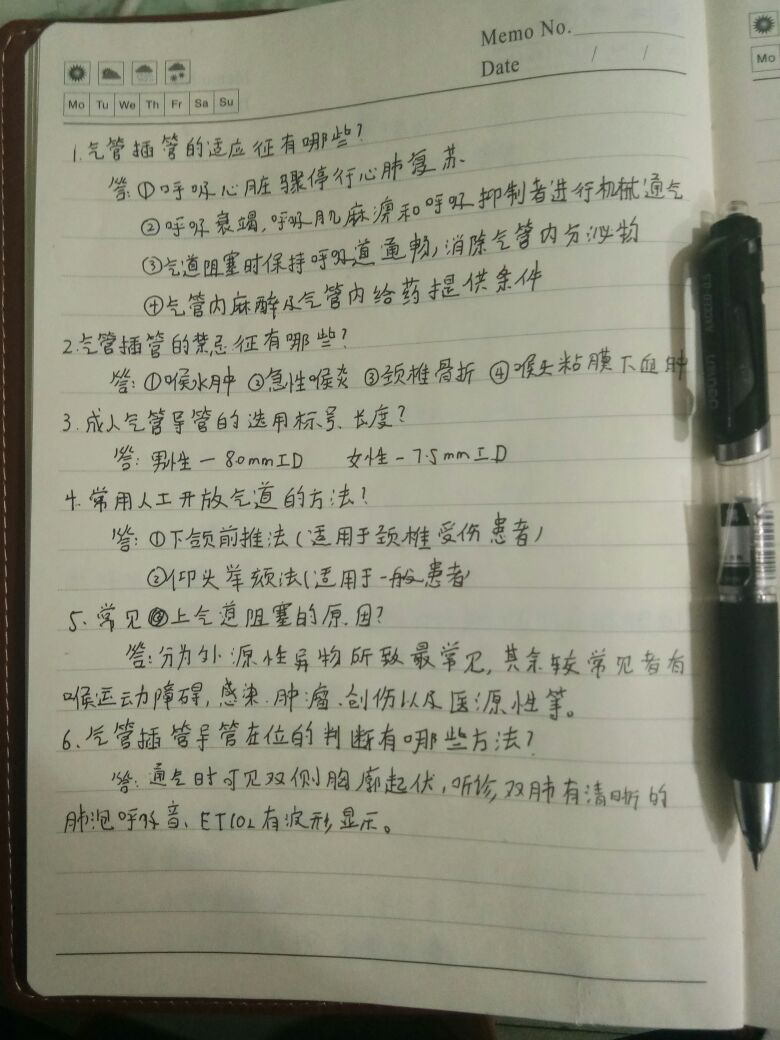 Memo No.
Date / /
Mo Tu We Th Fr Sa Su
Mo
1.气管插管的适应征有哪些?
答:①呼吸心脏骤停行心肺复苏、
②呼吸衰竭,呼吸肌麻痹和呼吸抑制者进行机械通气
③气道阻塞时保持呼吸道通畅,消除气管内分泌物
④气管内麻醉及气管内给药提供条件
2.气管插管的禁忌征有哪些?
答:①喉水肿 ②急性喉炎 ③颈椎骨折 ④喉头粘膜下血肿
3.成人气管导管的选用标号、长度?
答:男性-8.0mmID 女性-7.5mmID
4.常用人工开放气道的方法?
答:①下颌前推法(适用于颈椎受伤患者)
②仰头举颏法(适用于一般患者)
5、常见上气道阻塞的原因?
答:分为外源性异物所致最常见,其余较常见者有
喉运动障碍,感染、肿瘤、创伤以及医源性等。
6、气管插管导管在位的判断有哪些方法?
答:通气时可见双侧胸廓起伏,听诊,双肺有清晰的
肺泡呼吸音、ETCO2有波形显示。